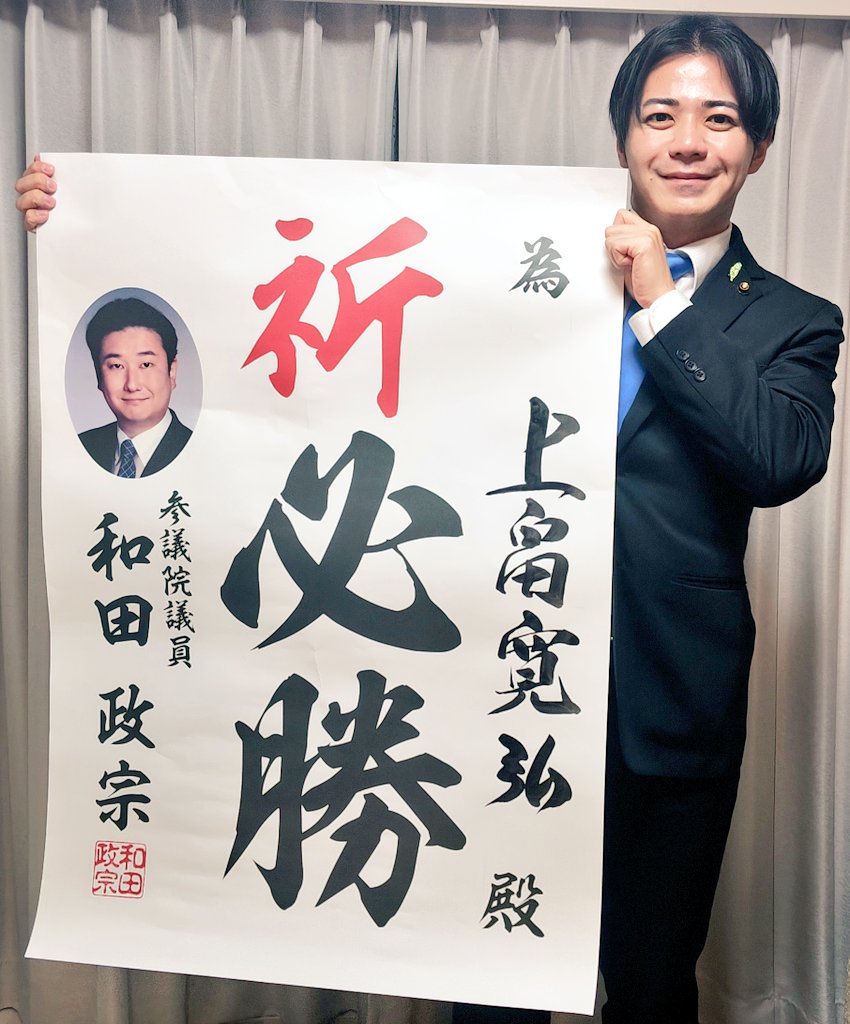 為 上畠寛弘 殿
祈必勝
参議院議員
和田政宗
和田
政宗